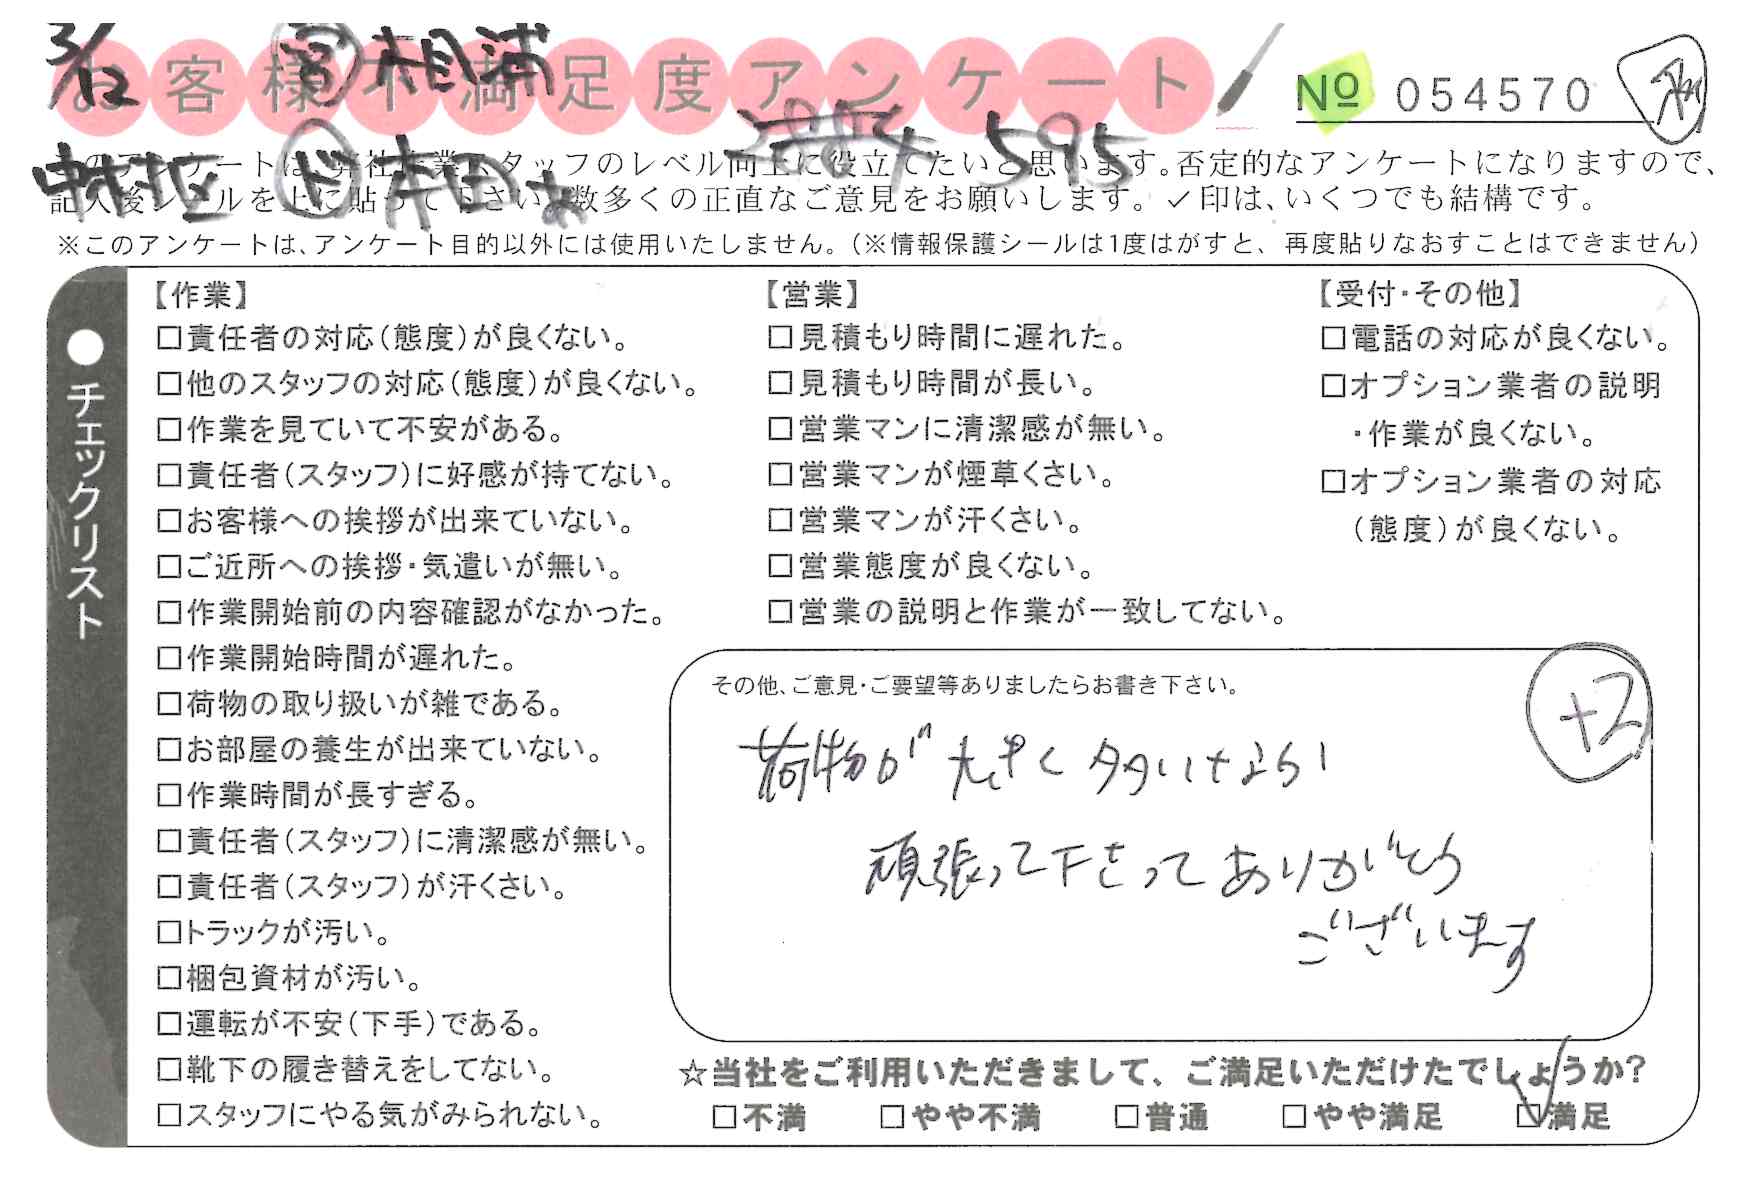 3/12 営 相浦
お客様不満足度アンケート
No 054570
中村区 595
このアンケートは、弊社作業スタッフのレベル向上に役立てたいと思います。否定的なアンケートになりますので、
記入後シールを上に貼って下さい。数多くの正直なご意見をお願いします。✓印は、いくつでも結構です。
※このアンケートは、アンケート目的以外には使用いたしません。(※情報保護シールは1度はがすと、再度貼りなおすことはできません)
●チェックリスト
【作業】
□責任者の対応(態度)が良くない。
□他のスタッフの対応(態度)が良くない。
□作業を見ていて不安がある。
□責任者(スタッフ)に好感が持てない。
□お客様への挨拶が出来ていない。
□ご近所への挨拶・気遣いが無い。
□作業開始前の内容確認がなかった。
□作業開始時間が遅れた。
□荷物の取り扱いが雑である。
□お部屋の養生が出来ていない。
□作業時間が長すぎる。
□責任者(スタッフ)に清潔感が無い。
□責任者(スタッフ)が汗くさい。
□トラックが汚い。
□梱包資材が汚い。
□運転が不安(下手)である。
□靴下の履き替えをしてない。
□スタッフにやる気がみられない。
【営業】
□見積もり時間に遅れた。
□見積もり時間が長い。
□営業マンに清潔感が無い。
□営業マンが煙草くさい。
□営業マンが汗くさい。
□営業態度が良くない。
□営業の説明と作業が一致してない。
【受付・その他】
□電話の対応が良くない。
□オプション業者の説明
・作業が良くない。
□オプション業者の対応
(態度)が良くない。
その他、ご意見・ご要望等ありましたらお書き下さい。
+2
荷物が大きく多い中
頑張って下さってありがとう
ございます
☆当社をご利用いただきまして、ご満足いただけたでしょうか?
□不満 □やや不満 □普通 □やや満足 ☑満足